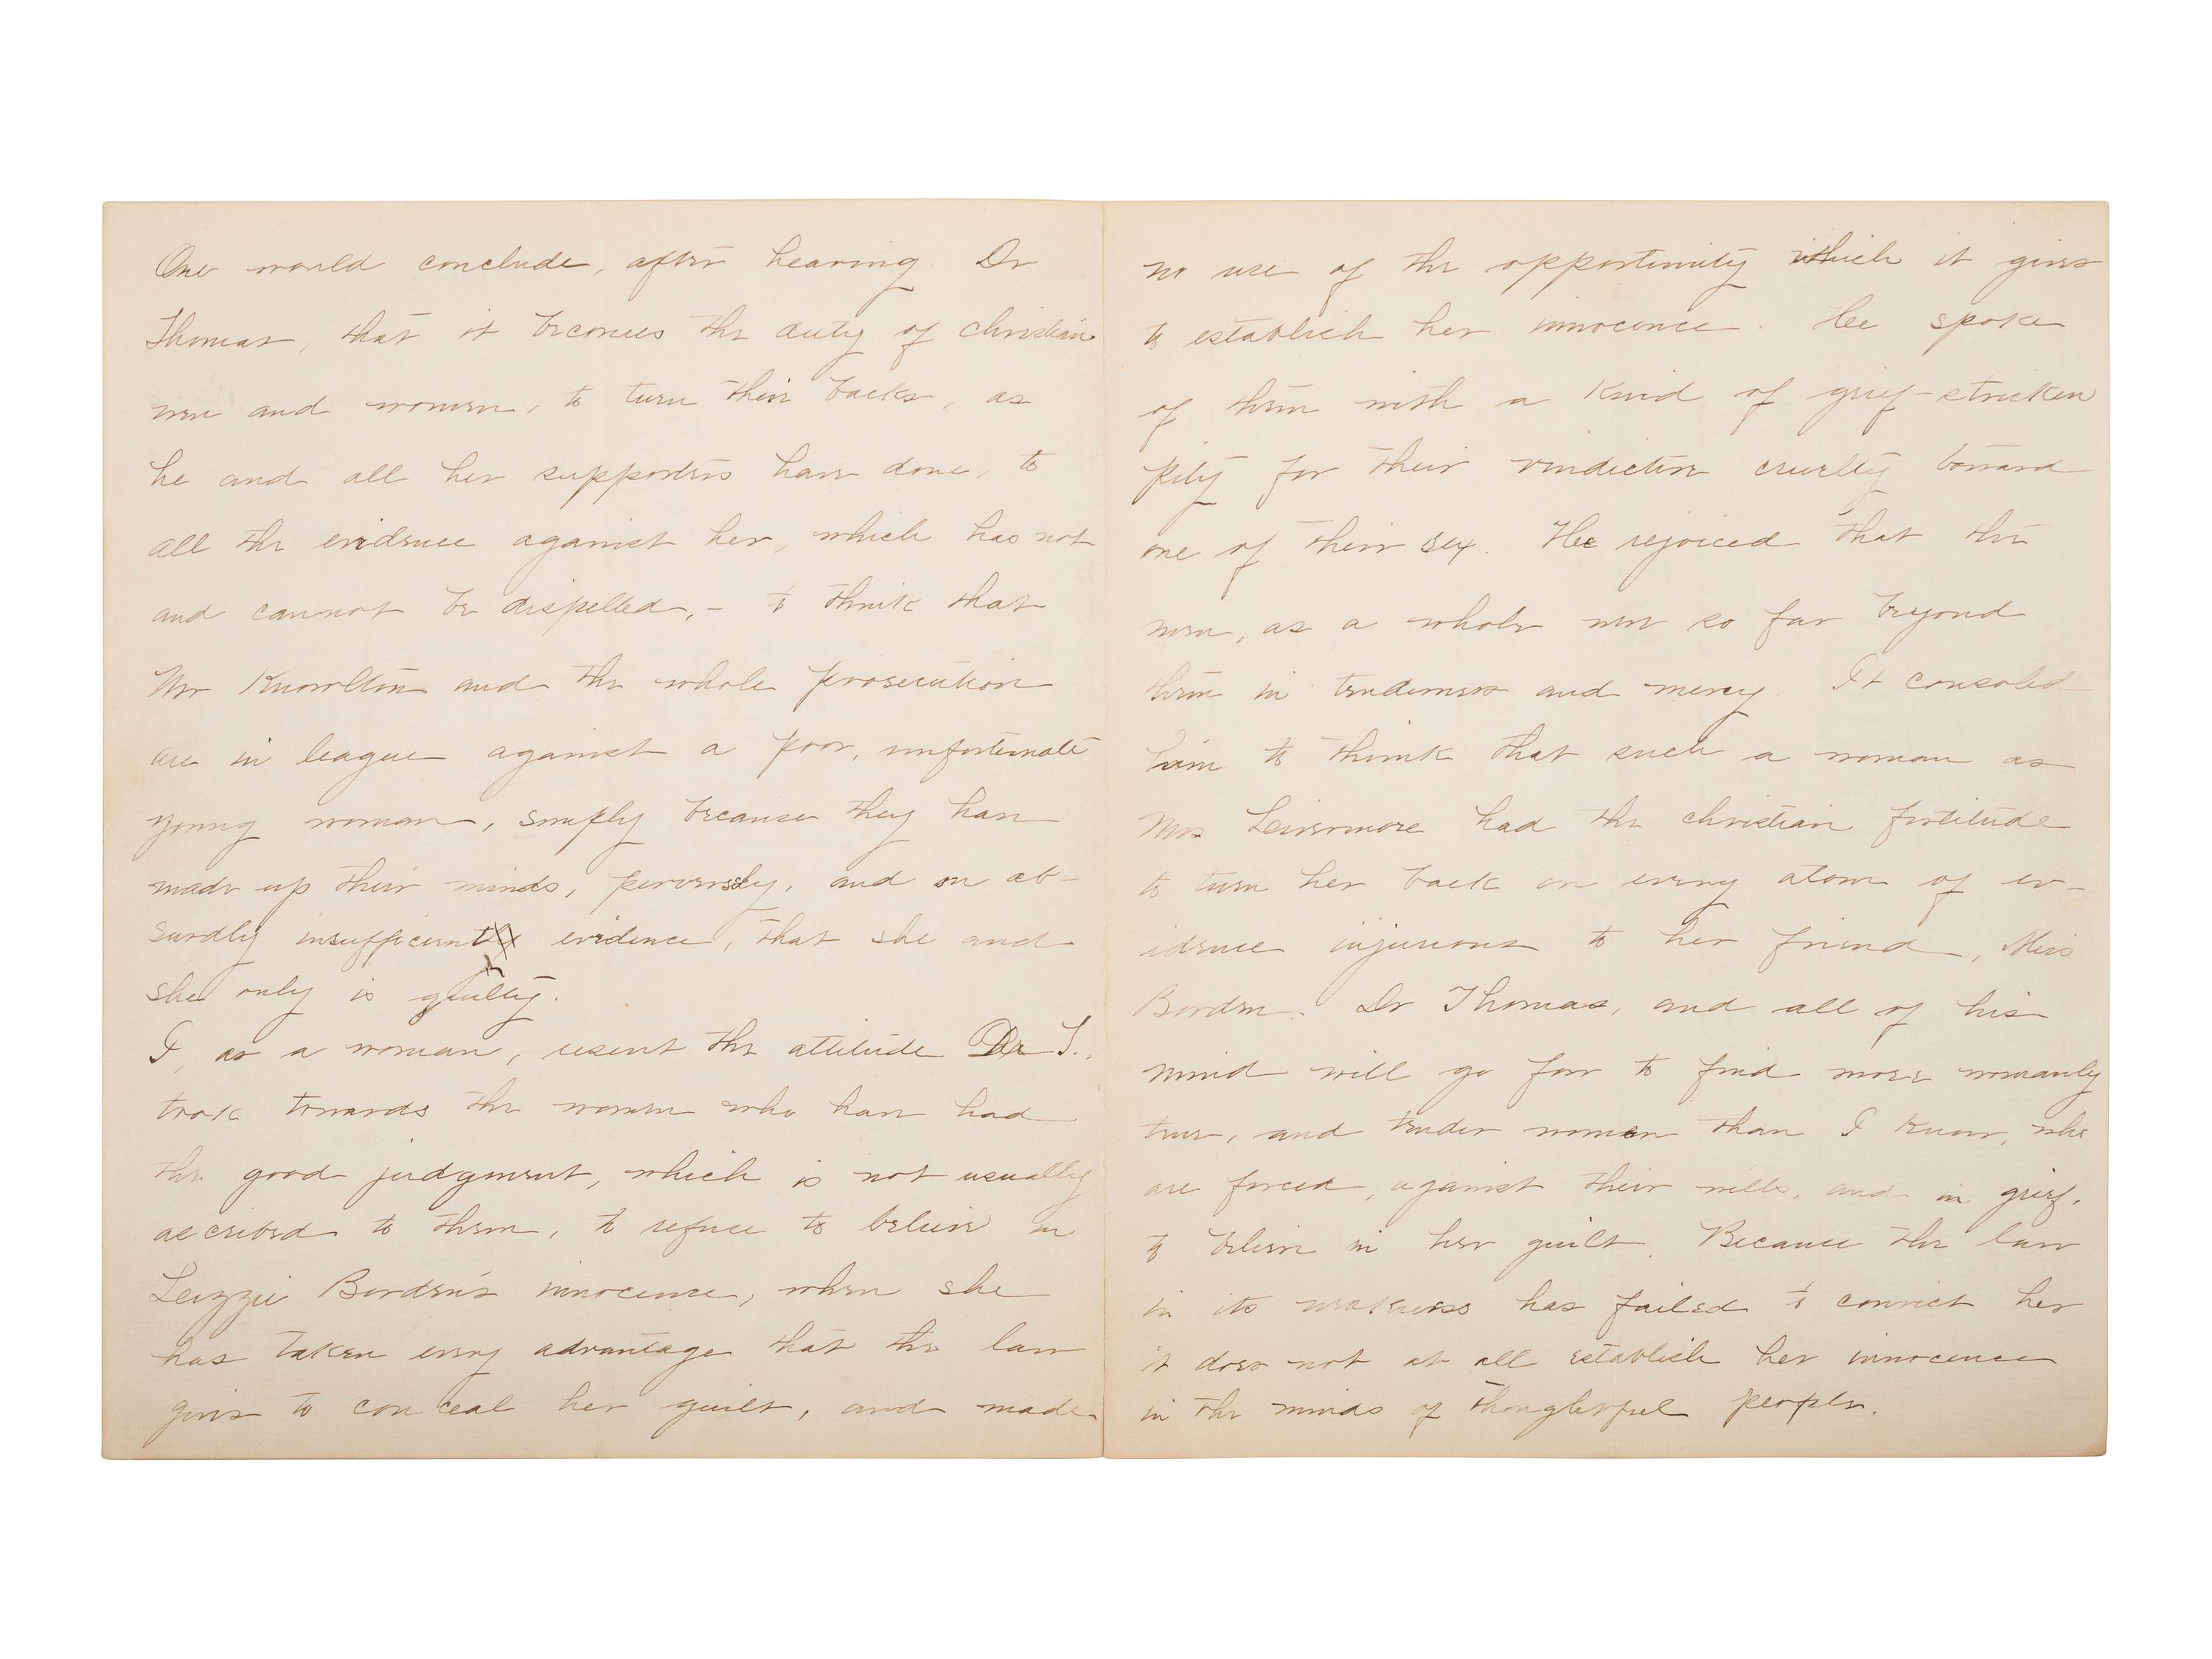 One would conclude, after hearing Dr
Thomas, that it becomes the duty of christian
men and women, to turn their backs, as
he and all her supporters have done, to
all the evidence against her, which has not
and cannot be dispelled, - to think that
Mr Knowlton and the whole prosecution
are in league against a poor, unfortunate
young woman, simply because they have
made up their minds, perversely, and on ab-
surdly insufficient evidence, that she and
she only is guilty.
I, as a woman, resent the attitude Dr T.,
took towards the women who have had
the good judgment, which is not usually
ascribed to them, to refuse to believe in
Lizzie Borden's innocence, when she
has taken every advantage that the law
gives to conceal her guilt, and made
no use of the opportunity which it gives
to establish her innocence. He spoke
of them with a kind of grief-stricken
pity for their vindictive cruelty toward
one of their sex. He rejoiced that the
men, as a whole were so far beyond
them in tenderness and mercy. It consoled
him to think that such a woman as
Mrs Livermore had the christian fortitude
to turn her back on every atom of ev-
idence injurious to her friend, Miss
Borden. Dr Thomas, and all of his
mind will go far to find more womanly
true, and tender women than I know, who
are forced, against their wills, and in grief,
to believe in her guilt. Because the law
in its weakness has failed to convict her
it does not at all establish her innocence
in the minds of thoughtful people.